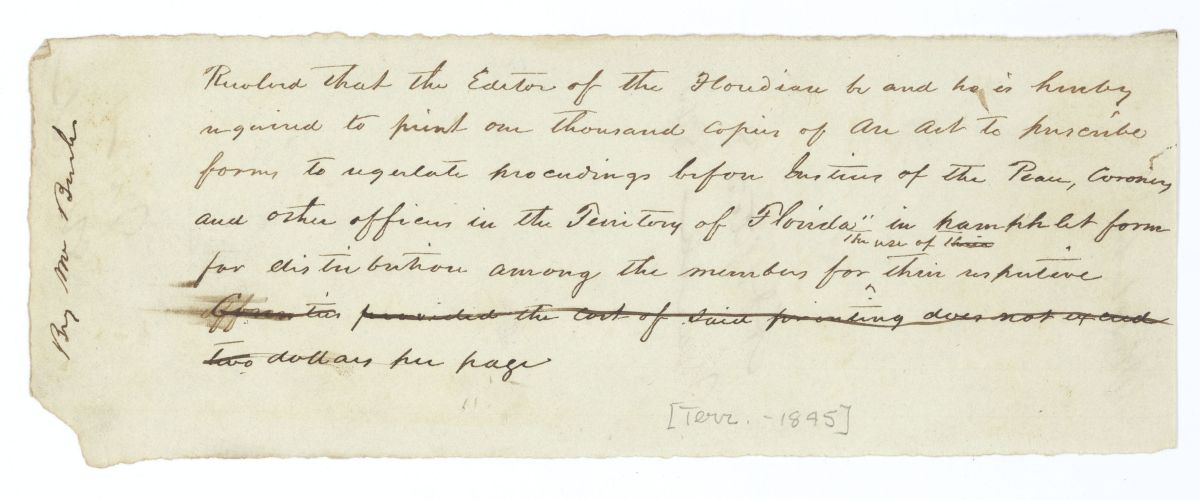 By Mr Burk
Resolved that the Editor of the Floridian be and he is hereby
required to print one thousand copies of An Act to prescribe
forms to regulate proceedings before Justices of the Peace, Coroners
and other officers in the Territory of Florida" in pamphlet form
the use of their
for distribution among the members for their respective
Counties provided the cost of said printing does not exceed
two dollars per page
[Terr. - 1845]